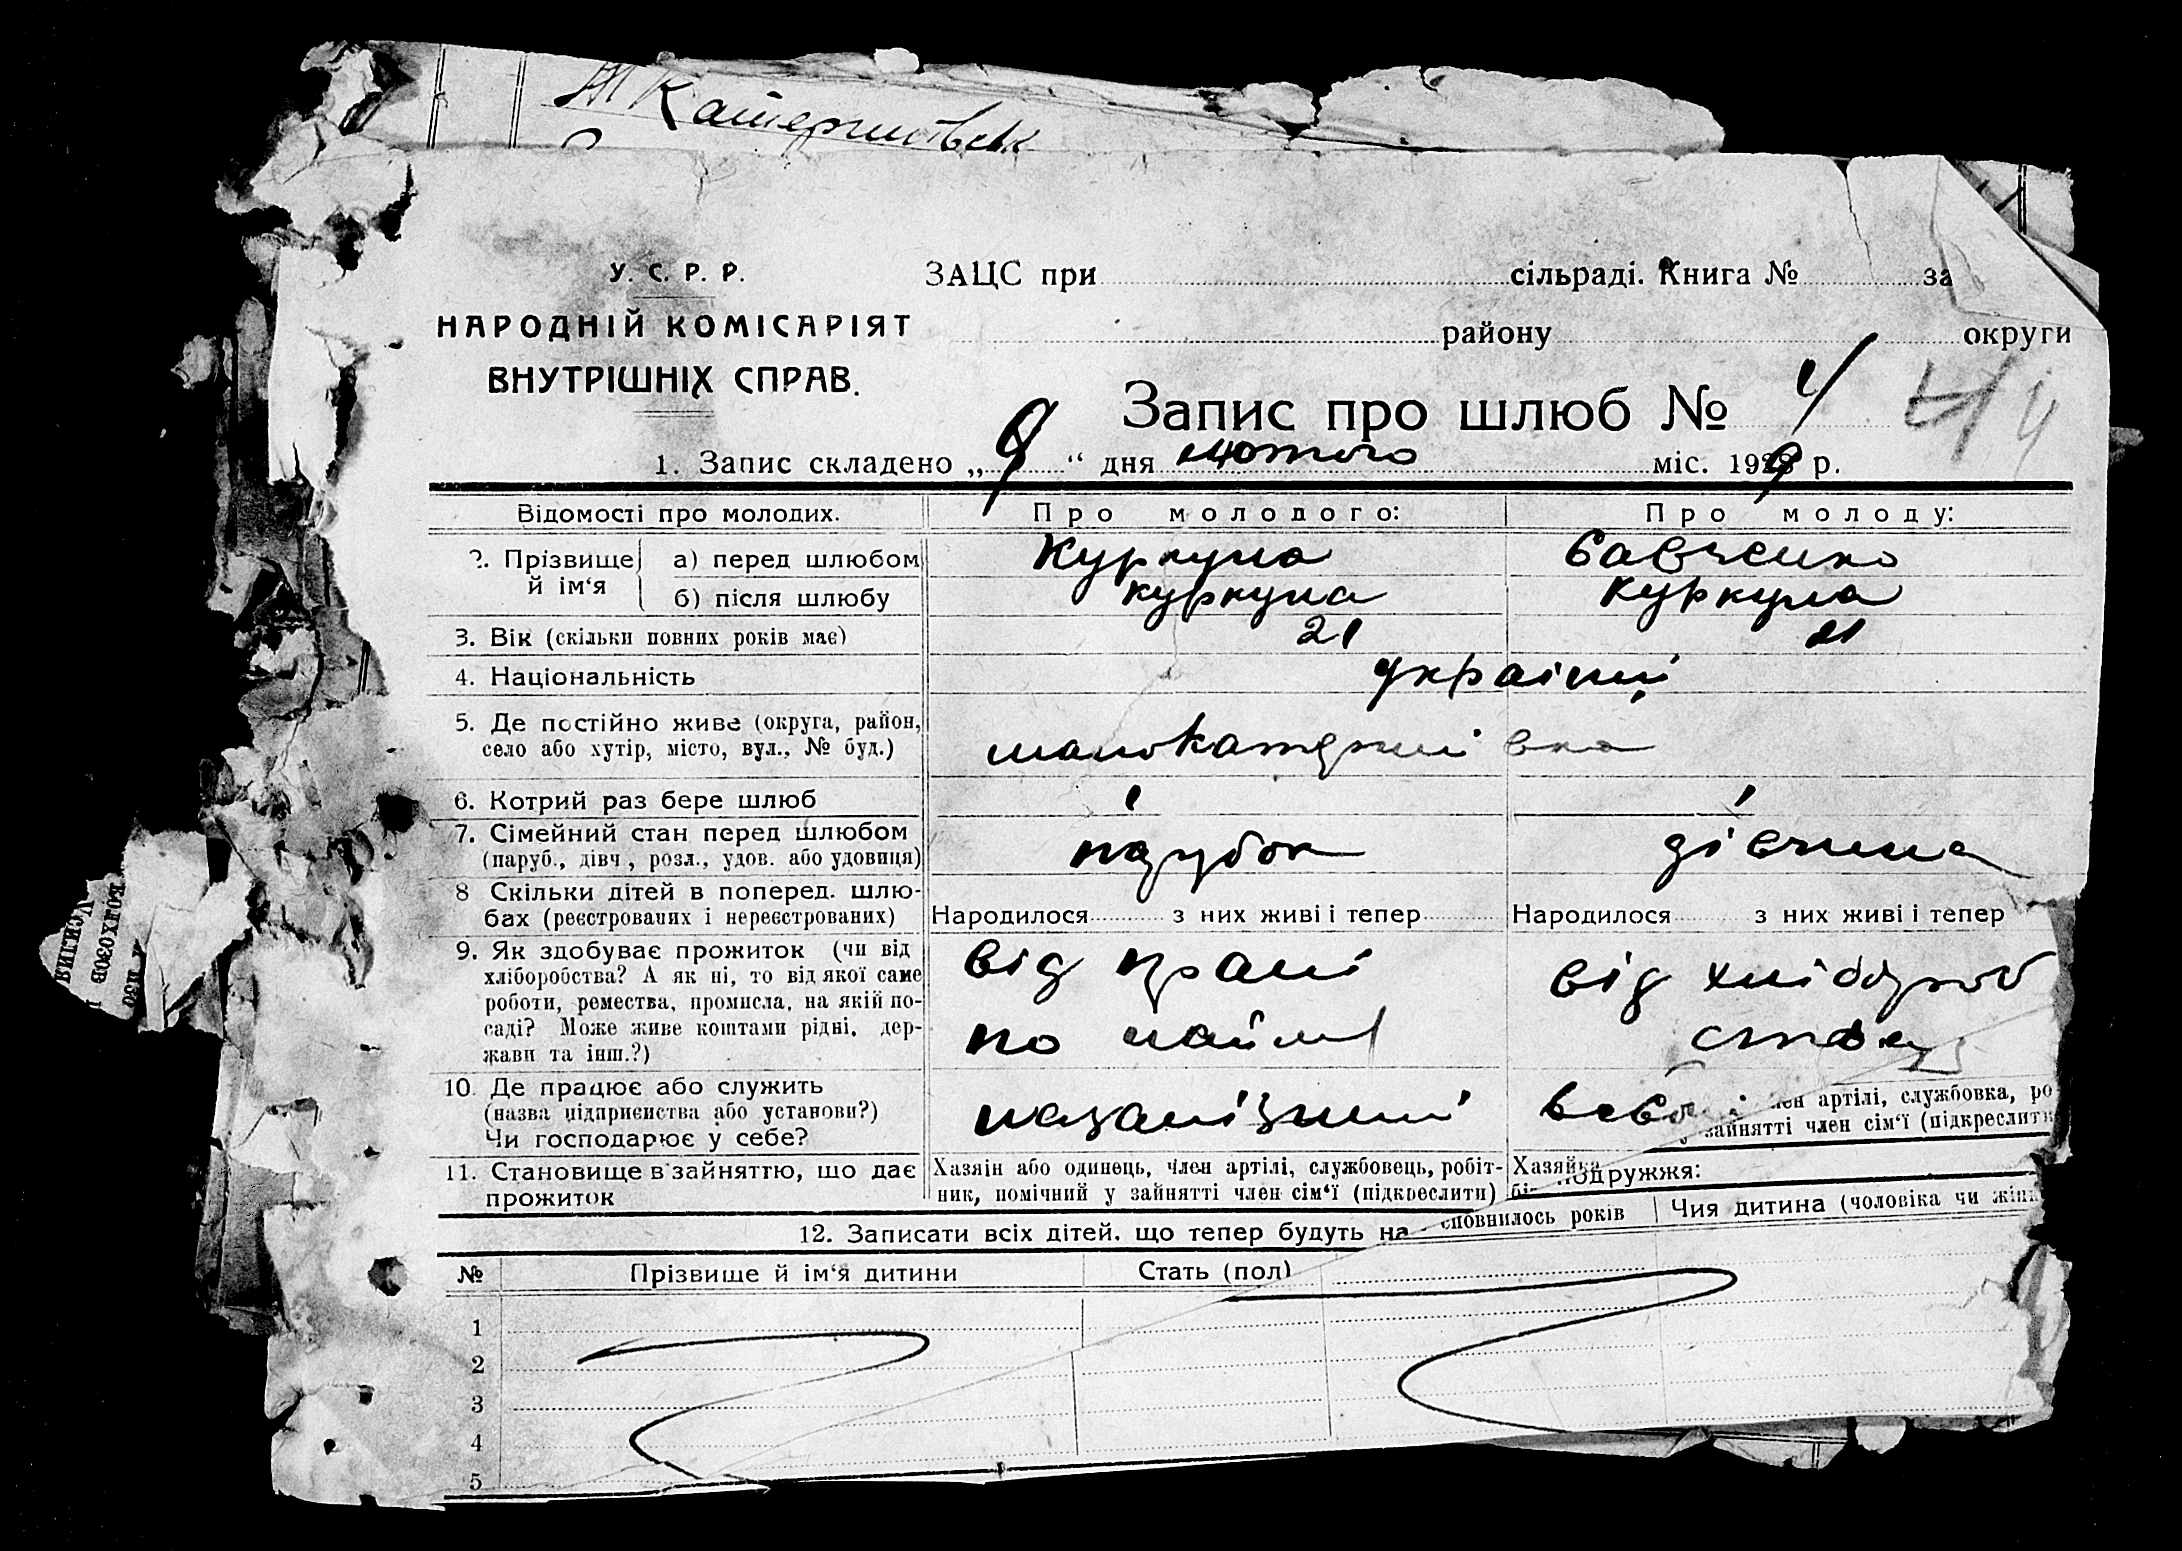 У. С. Р. Р.
НАРОДНІЙ КОМІСАРІЯТ
ВНУТРІШНІХ СПРАВ.
ЗАЦС при сільраді. Книга № за
району округи
Запис про шлюб № 4
1. Запис складено „9“ дня лютого міс. 1929 р.
Відомості про молодих. Про молодого: Про молоду:
2. Прізвище й ім‘я а) перед шлюбом Куркула Савченко
б) після шлюбу Куркула Куркула
3. Вік (скільки повних років має) 21 21
4. Національність україн
5. Де постійно живе (округа, район, село або хутір, місто, вул., № буд.) малокатеринівка
6. Котрий раз бере шлюб 1 1
7. Сімейний стан перед шлюбом (паруб., дівч., розл., удов. або удовиця) парубок дівчина
8 Скільки дітей в поперед. шлюбах (реєстрованих і нереєстрованих) Народилося з них живі і тепер Народилося з них живі і тепер
9. Як здобуває прожиток (чи від хліборобства? А як ні, то від якої саме роботи, ремества, промисла, на якій посаді? Може живе коштами рідні, держави та інш.?) від праці по найму від хліборобства
10. Де працює або служить (назва підприємства або установи?) Чи господарює у себе?
артілі, службовка, ро
зайнятті член сім‘ї (підкреслити
11. Становище в зайняттю, що дає прожиток Хазяїн або одинець, член артілі, службовець, робітник, помічний у зайнятті член сім‘ї (підкреслити) Хазяйка
подружжя:
12. Записати всіх дітей. що тепер будуть на
сповнилось років Чия дитина (чоловіка чи жінк
№ Прізвище й ім‘я дитини Стать (пол)
1
2
3
4
5